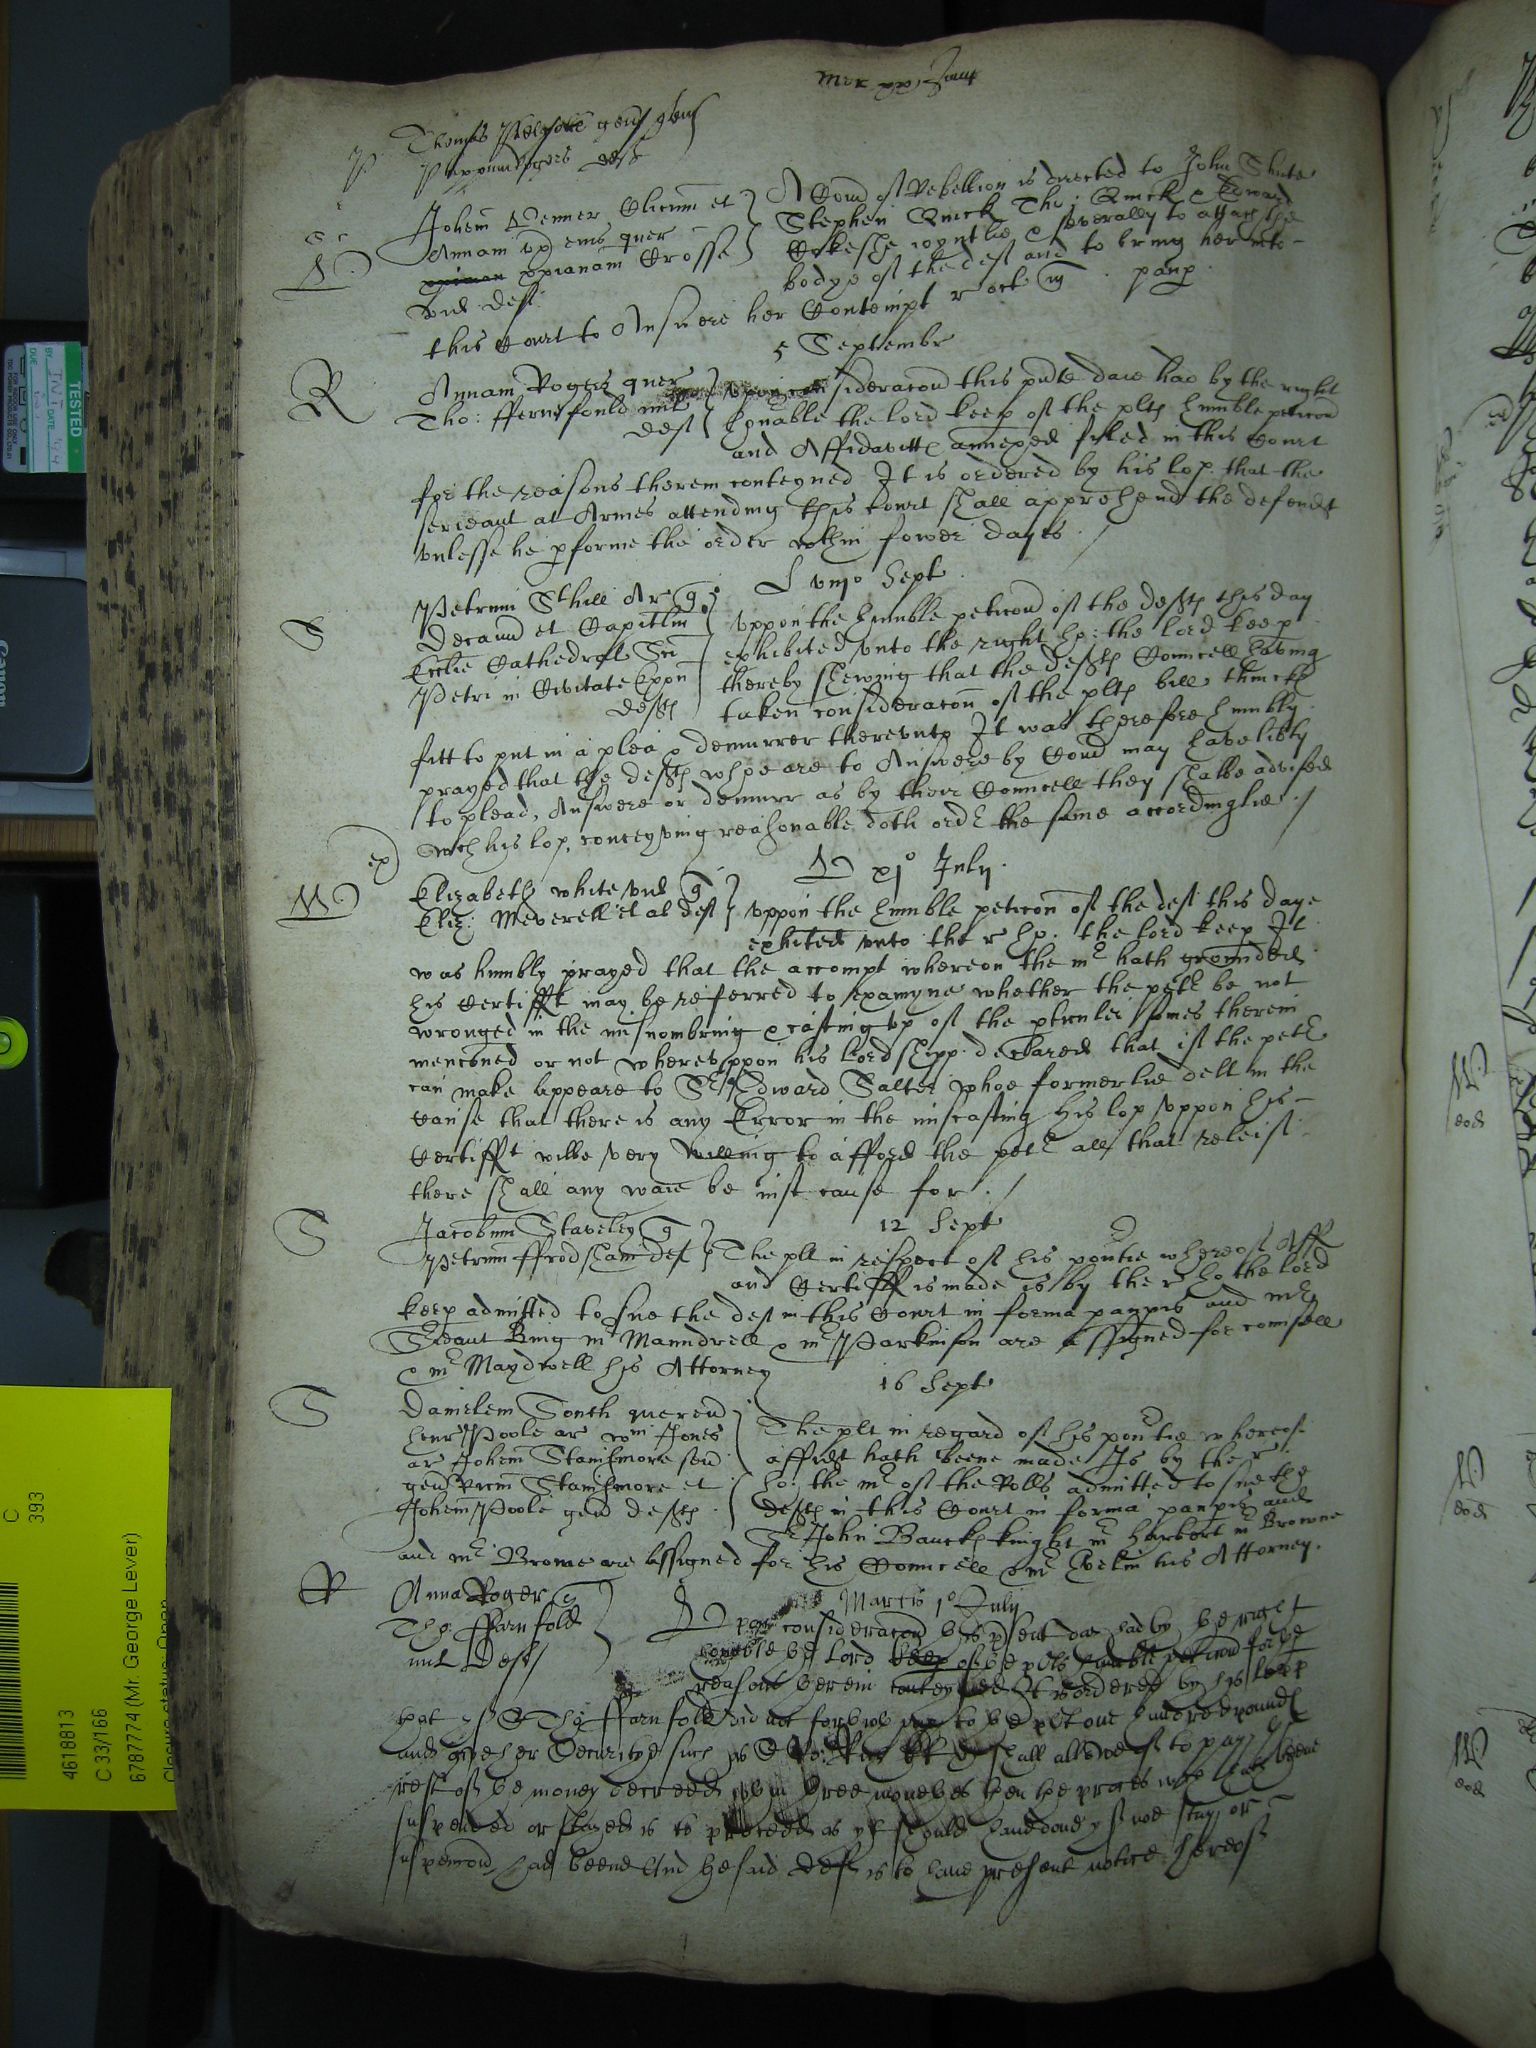 Thomas gen quer
def
Johem Venner Clicum et
Annam ux eius quer
xpianam Crosse
vid def
A Com of Rebellion is directed to John Shute
Stephen Quick Tho: Quick & Edward
joyntlie & severally to attach the
bodye of the def and to bring her into
this Court to Answere her Contempt r octo
5 September
R
Annam Rogers quer
Tho: ffernfould mil
def
uppon consideracon this pnte daie had by the right
honable the lord keep of the plts humble peticon
and Affidavitt annexed filed in this Court
for the reasons therein conteyned It is ordered by his lop. that the
serieant at Armes attending this Court shall apprehend the defendt
unlesse he pforme the order wthin fower dayes
L viijo Sept
S
Petrum Sthill Ar q
Decanu et Capitlm
Ecclie Cathedral Sci
Petri in Civitate Exon
defts
Uppon the humble peticon of the defts this day
exhibited unto the right ho: the lord keep
thereby shewing that the defts Councell having
taken consideracon of the plts bill thinckes
fitt to put in a plea & demurrer thereunto It was therefore humbly
prayed that the defts whoe are to Answere by Com may have liby
to plead, Answere or demurr as by their Councell they shalbe advised
wch his lop. conceyving reasonable doth ordr the same accordinglie
ex
xjo July
W
Elizabeth white vid q
Eliz: Meverell et al def
uppon the humble peticon of the def this daye
exhited unto the r ho. the lord keep It
was humbly prayed that the accompt whereon the mr hath grounded
his Certifft may be referred to examyne whether the petr be not
wronged in the misnombring & casting up of the pticuler somes therein
menconed or not whereuppon his Lordshipp declared that if the petr
can make appeare to Sr Edward Salter whoe formerlie delt in the
Cause that there is any Error in the miscasting his lop uppon his
Certifft wilbe very willing to afford the petr all that releif
there shall any waie be iust cause for
12 Sept
S
Jacobum Staveley q
Petrum ffrodsham def
The plt in respect of his povtie whereof Aff
and Certiff is made is by the r ho the lord
keep admitted to sue the def in this Court in forma paupis and mr
Sieant Bing mr Maundrell & mr Parkinson are assigned for counsell
& mr Maydwell his Attorney
16 Sept
S
Danielem South querend
henr Poole ar wm Jones
ar Johem Stanshmore sen
gen Stanshmore et
Johem Poole gen defts
The plt in regard of his povtie whereof
affidt hath beene made Is by the r
ho: the mr of the Rolls admitted to sue the
defts in this Court in forma paupis and
Sr John Bancks knight mr Harbert mr Browne
and mr Brome are assigned for his Councell & mr his Attorney.
R
Anna Roger q
Tho: ffarnfold
mil Deft
Martis 1o July
Upon consideracon this psent day had by the right
honoble the Lord keep of the plts humble peticon for the
reasons therein conteyned It is ordered by his lop
that if Sr Tho: ffarnfold did not forthwth pay to the plt one hundred pounds
and give her Securitye such as Sr shall allowe of to pay the
rest of the money decreed wthin three monethes then the proces wch hath beene
suspended or stayed is to proceede as yf should have done yf noe stay or
suspencion had beene And the said deft is to have present notice hereof
TESTED
INT
Canon
C
393
4618813
C 33/166
6787774 (Mr. George Lever)
Closure status: Open